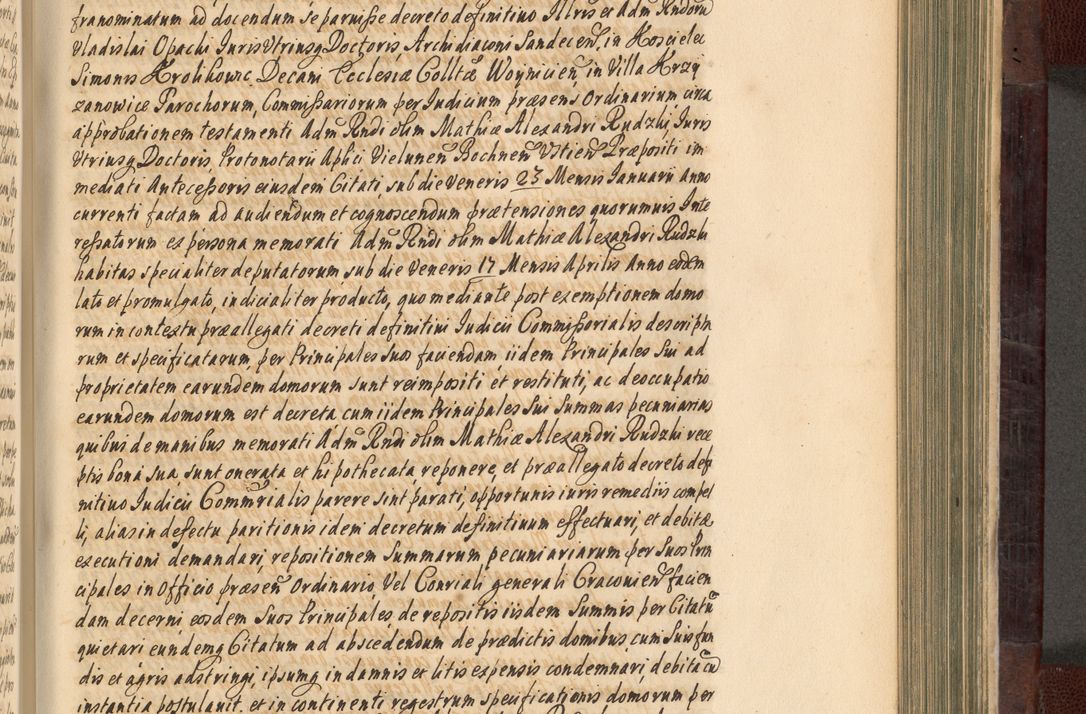 franominatum ad docendum se paruisse decreto definitivo Illris et Adm Rndoru
Vladislai Opacki Iuris Vtriusq Doctoris, Archidiaconi Sandecen, in Kościelec
Simonis Krolikowic Decani Ecclesiæ Colltæ Woynicien, in Villa Krzy
zanowice Parochorum, Commissariorum per Iudicium præsens Ordinarium circa
approbationem testamenti Adm Rndi olim Mathiæ Alexandri Rudzki, Iuris
Vtriusq Doctoris, Protonotarii Aplici Vielunen Bochnen Vstien Præpositi im
mediati Antecessoris eiusdem Citati, sub die Veneris 23 Mensis Ianuarii Anno
currenti factam ad audiendum et cognoscendum prætensiones quorumuis Inte
ressatorum ex persona memorati Adm Rndi olim Mathiæ Alexandri Rudzki
habitas specialiter deputatorum sub die Veneris 17 Mensis Aprilis Anno eodem
lato et promulgato, iudicialiter producto, quo mediante post exemptionem domo
rum in contextu præallegati decreti definitiui Iudicii Commissorialis descripta
rum et specificatarum, per Principales Suos faciendam iidem Principales Sui ad
proprietatem earundem domorum sunt reimpositi et restituti, ac deoccupatio
earundem domorum est decreta cum iidem Principales Sui Summas pecuniarias
quibus de manibus memorati Adm Rndi olim Mathiæ Alexandri Rudzki rece
ptis bona sua, sunt onerata et hipothecata, reponere, et præallegato decreto defi
nitiuo Iudicii Commrialis parere sint parati, opportunis iuris remediis compel
li, alias in defectu paritionis idem decretum definitiuum effectuari, et debitæ
executioni demandari, repositionem Summarum pecuniariarum per Suos Prin
cipales in Officio præsen Ordinario, Vel Conriali generali Cracouien facien
dam decerni, eosdem Suos Principales de repositis iisdem Summis per Citatu
quietari eundemq Citatum ad abscedendum de prædictis domibus, cum Suis fun
dis et agris adstringi, ipsumq in damnis et litis expensis condemnari, debita cu
instantia postulauit, et in continenti regestrum specificationis domorum per